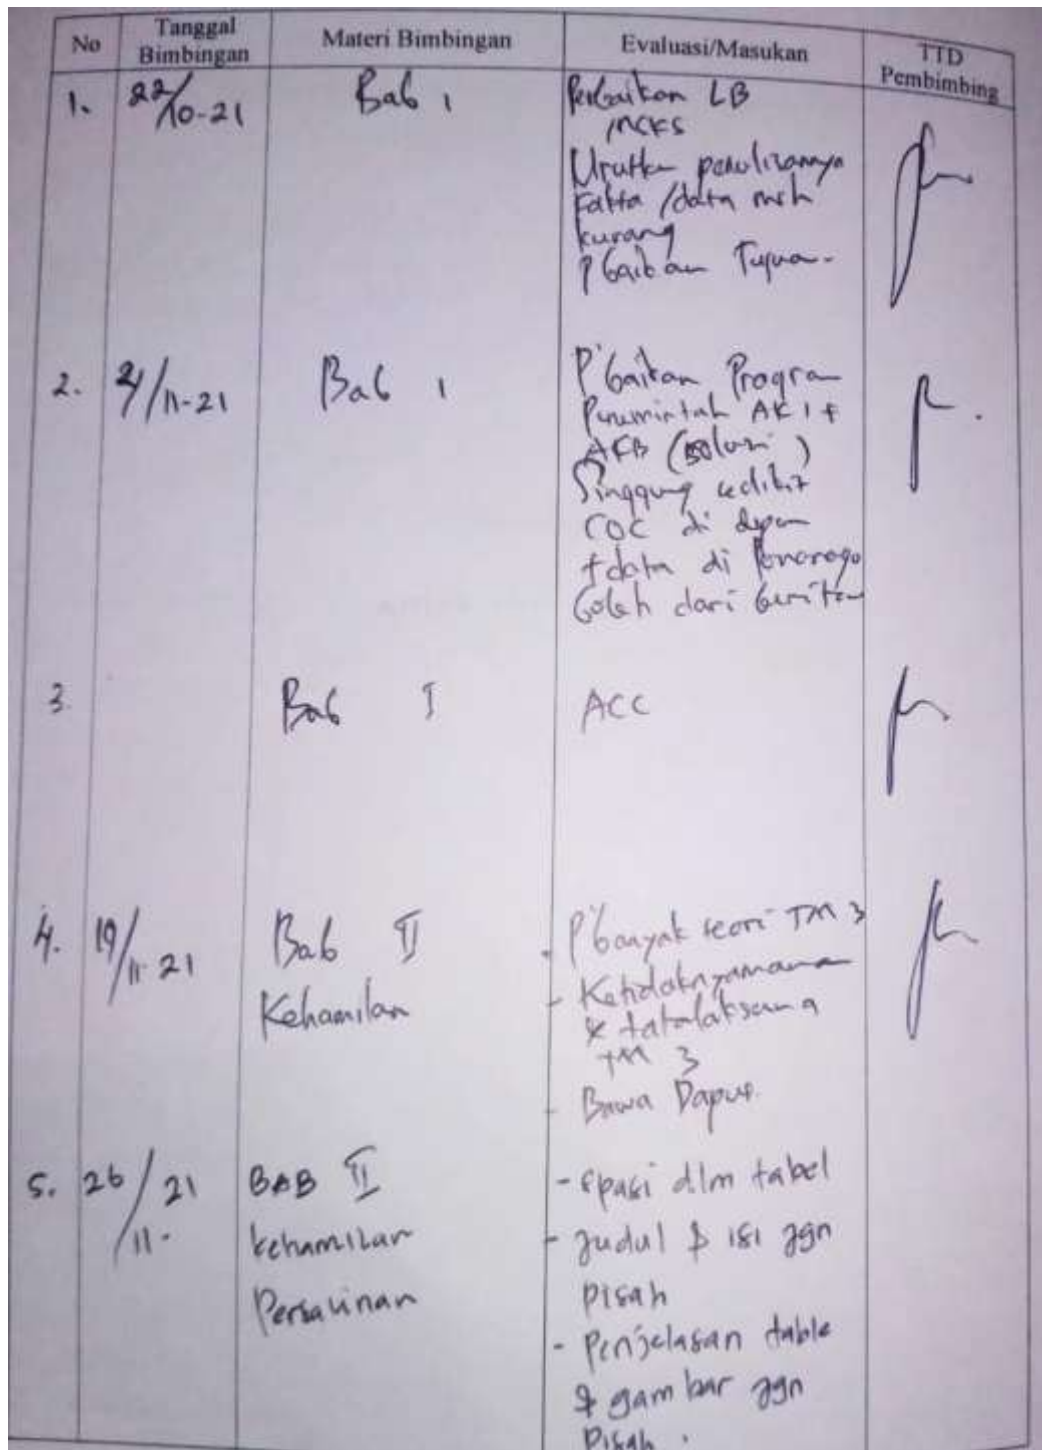 No
Tanggal Bimbingan
Materi Bimbingan
Evaluasi/Masukan
TTD Pembimbing
1.
22/10-21
Bab 1
Perbaikan LB
Urutkan penulisannya
Fakta /data msh
kurang
P'baikan Tujuan.
2.
/11-21
Bab 1
P'baikan Program
Pemerintah AKI +
AKB (solusi)
Singgung sedikit
COC di depan
+data di Ponorogo
boleh dari berita
3.
Bab I
ACC
4.
19/11-21
Bab II
Kehamilan
- P'banyak teori TM 3
- Ketidaknyamanan
& tatalaksana
TM 3
- Bawa Dapus.
5.
26/11-21
BAB II
kehamilan
Persalinan
- spasi dlm tabel
- Judul & isi jgn
pisah
- Penjelasan table
& gambar jgn
Pisah.